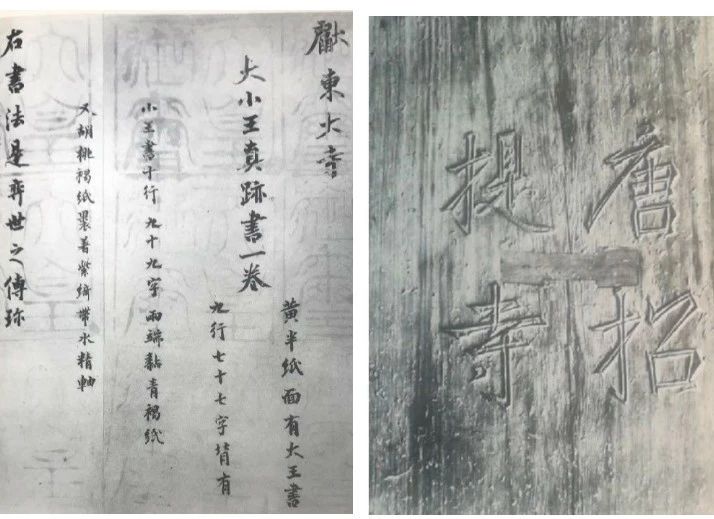 獻東大寺
大小王真跡書一卷
黃半紙面有大王書
九行七十七字背有
小王書十行九十九字兩端黏青褐紙
又胡桃褐紙裹著紫綺帶水精軸
右書法是奕世之傳珍
唐招
提寺